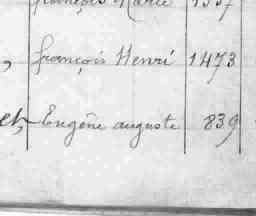 françois Marie 1337
, françois Henri 1473
et, Eugène auguste 839